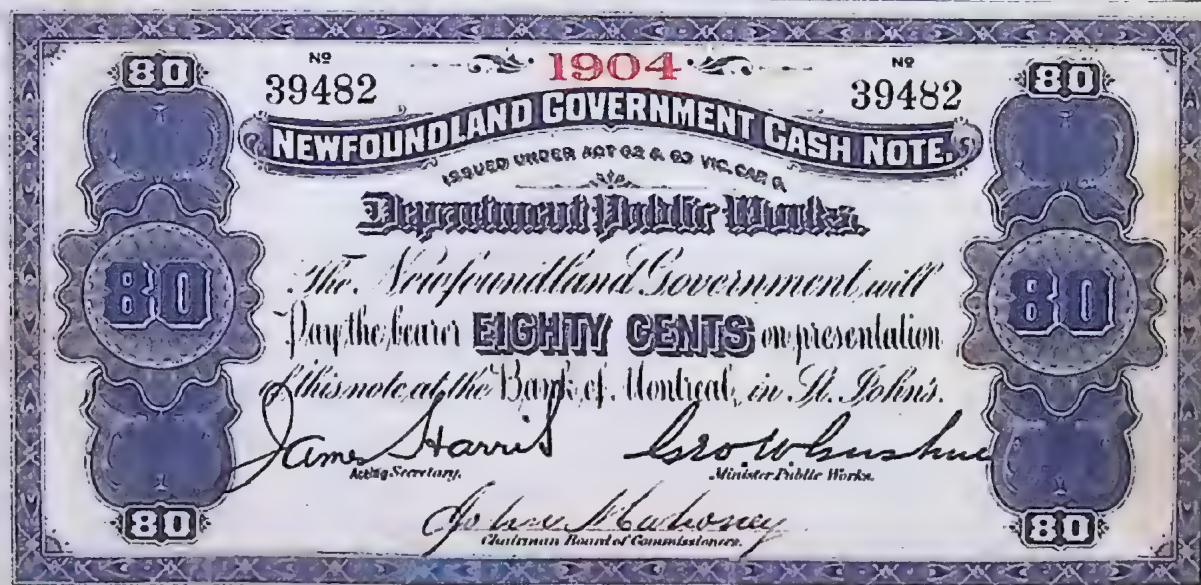 80 Nº 1904 Nº 80
39482 39482
NEWFOUNDLAND GOVERNMENT CASH NOTE.
ISSUED UNDER ACT 62 & 63 VIC. CAP 6.
Department Public Works.
The Newfoundland Government will
80 80
Pay the bearer EIGHTY CENTS on presentation
of this note, at the Bank of Montreal, in St. John's.
James Harris Geo W Gushue
Acting Secretary. Minister Public Works.
80 John Mahoney 80
Chairman Board of Commissioners.